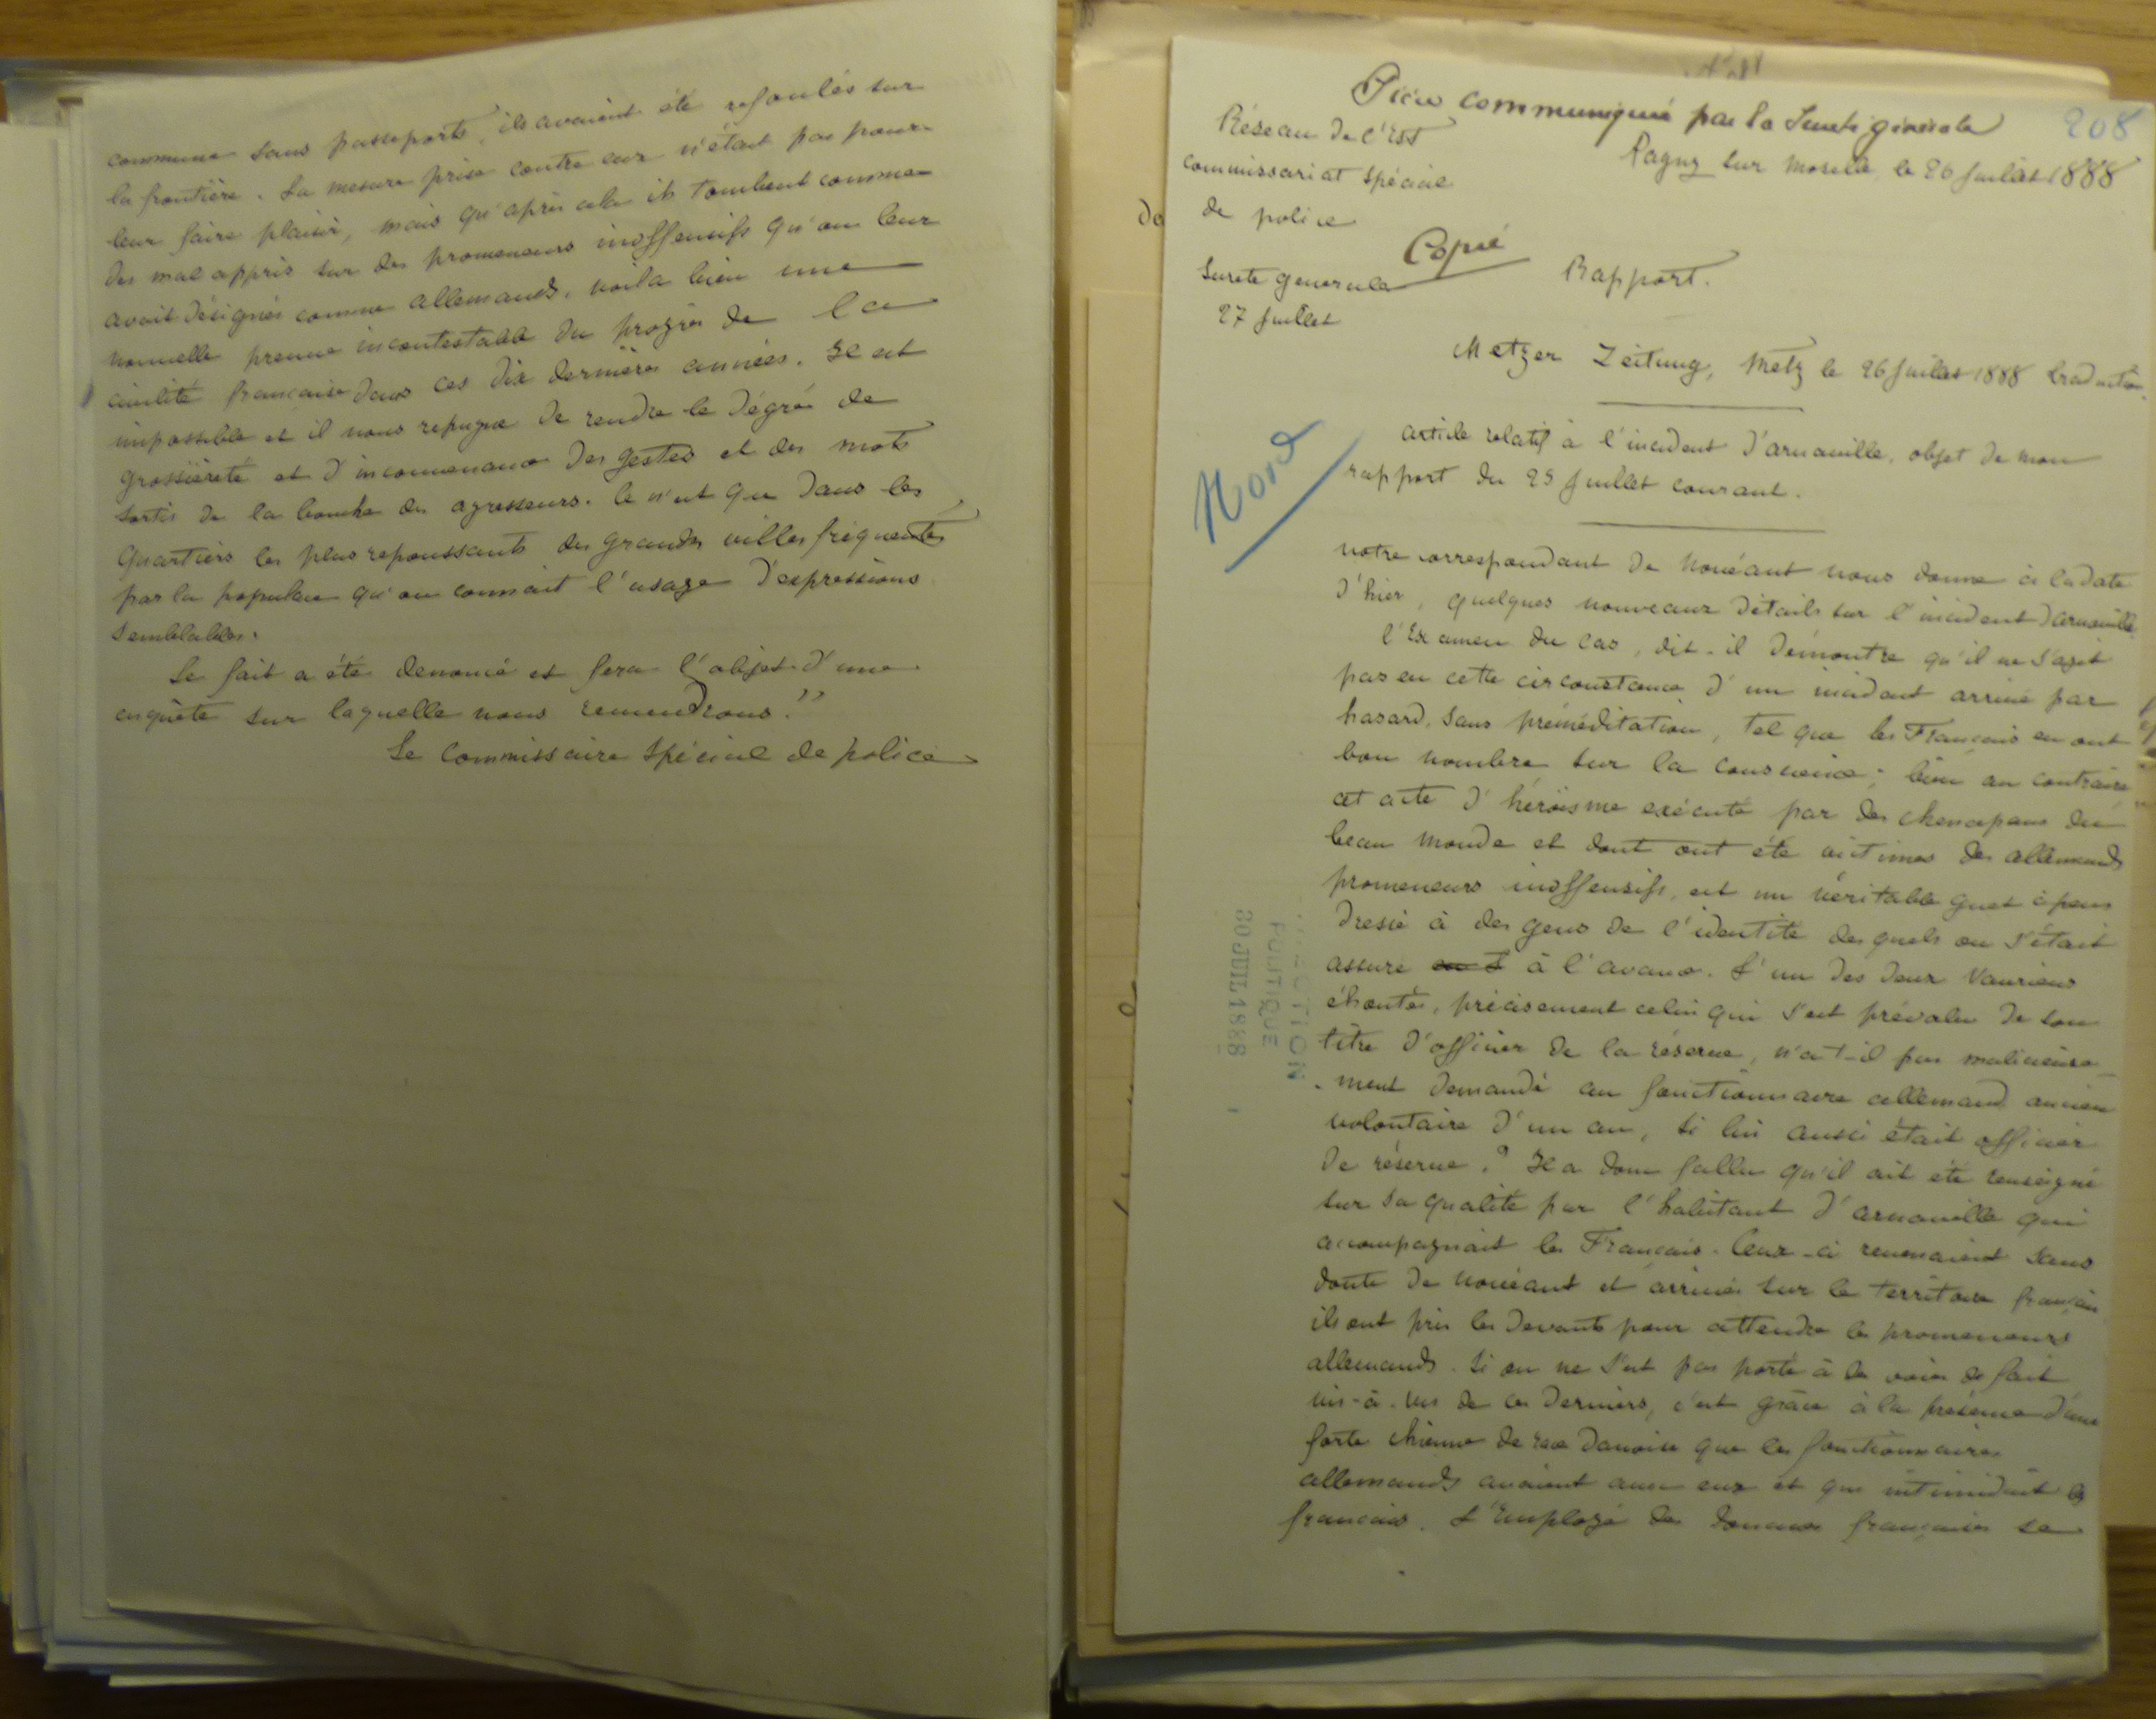 commune sans passeports, ils avaient été refoulés sur
la frontière. La mesure prise contre eux n'était pas pour
leur faire plaisir, mais qu'après cela ils tombent comme
des mal appris sur des promeneurs inoffensifs qu'on leur
avait désignés comme allemands, voila bien une
nouvelle preuve incontestable du progrès de la
civilité française dans ces dix dernières années. Il est
impossible et il nous repugne de rendre le dégré de
grossièreté et d'inconvenance des gestes et des mots
sortis de la bouche des agresseurs. Ce n'est que dans les
quartiers les plus repoussants des grandes villes fréquentés
par la populace qu'on connait l'usage d'expressions
semblables.
Le fait a été denoncé et fera l'objet d'une
enquête sur laquelle nous reviendrons."
Le Commissaire Spécial de police
208
Pièce communiquée par la Sureté générale
Réseau de l'Est
Pagny sur Moselle, le 26 Juillet 1888
commissariat spécial
de police
Copie
Sureté generale
Rapport.
27 Juillet
Metzer Zeitung, Metz le 26 Juillet 1888 traduction
Nord
article relatif à l'incident d'arnaville, objet de mon
rapport du 25 Juillet courant.
notre correspondant de Novéant nous donne à la date
d'hier, quelques nouveaux détails sur l'incident d'arnaville
l'Examen du cas, dit-il démontre qu'il ne s'agit
pas en cette circonstance d'un incident arrivé par
hasard, sans préméditation, tel que les Français en ont
bon nombre sur la conscience; bien au contraire
cet acte d'héroïsme exécuté par des chenapans du
beau monde et dont ont été victimes des allemands
promeneurs inoffensifs, est un véritable guet à pens
dressé à des gens de l'identité des quels on s'était
assuré à l'avance. L'un des deux vauriens
éhontés, précisement celui qui s'est prévalu de son
titre d'officier de la réserve, n'a-t-il pas malicieuse
-ment demandé au fonctionnaire allemand ancien
volontaire d'un an, si lui aussi était officier
de réserve? Il a donc fallu qu'il ait été renseigné
sur sa qualité par l'habitant d'arnaville qui
accompagnait les Français. Ceux-ci revenaient sans
doute de Novéant et arrivés sur le territoire français
ils ont pris les devants pour attendre les promeneurs
allemands. Si on ne s'est pas porté à des voies de fait
vis-à-vis de ces derniers, c'est grâce à la présence d'une
forte chienne de race danoise que les fonctionnaires
allemands avaient avec eux et qui intimidait les
français. L'Employé des douanes françaises se
DIRECTION
POLITIQUE
30 JUIL 1888